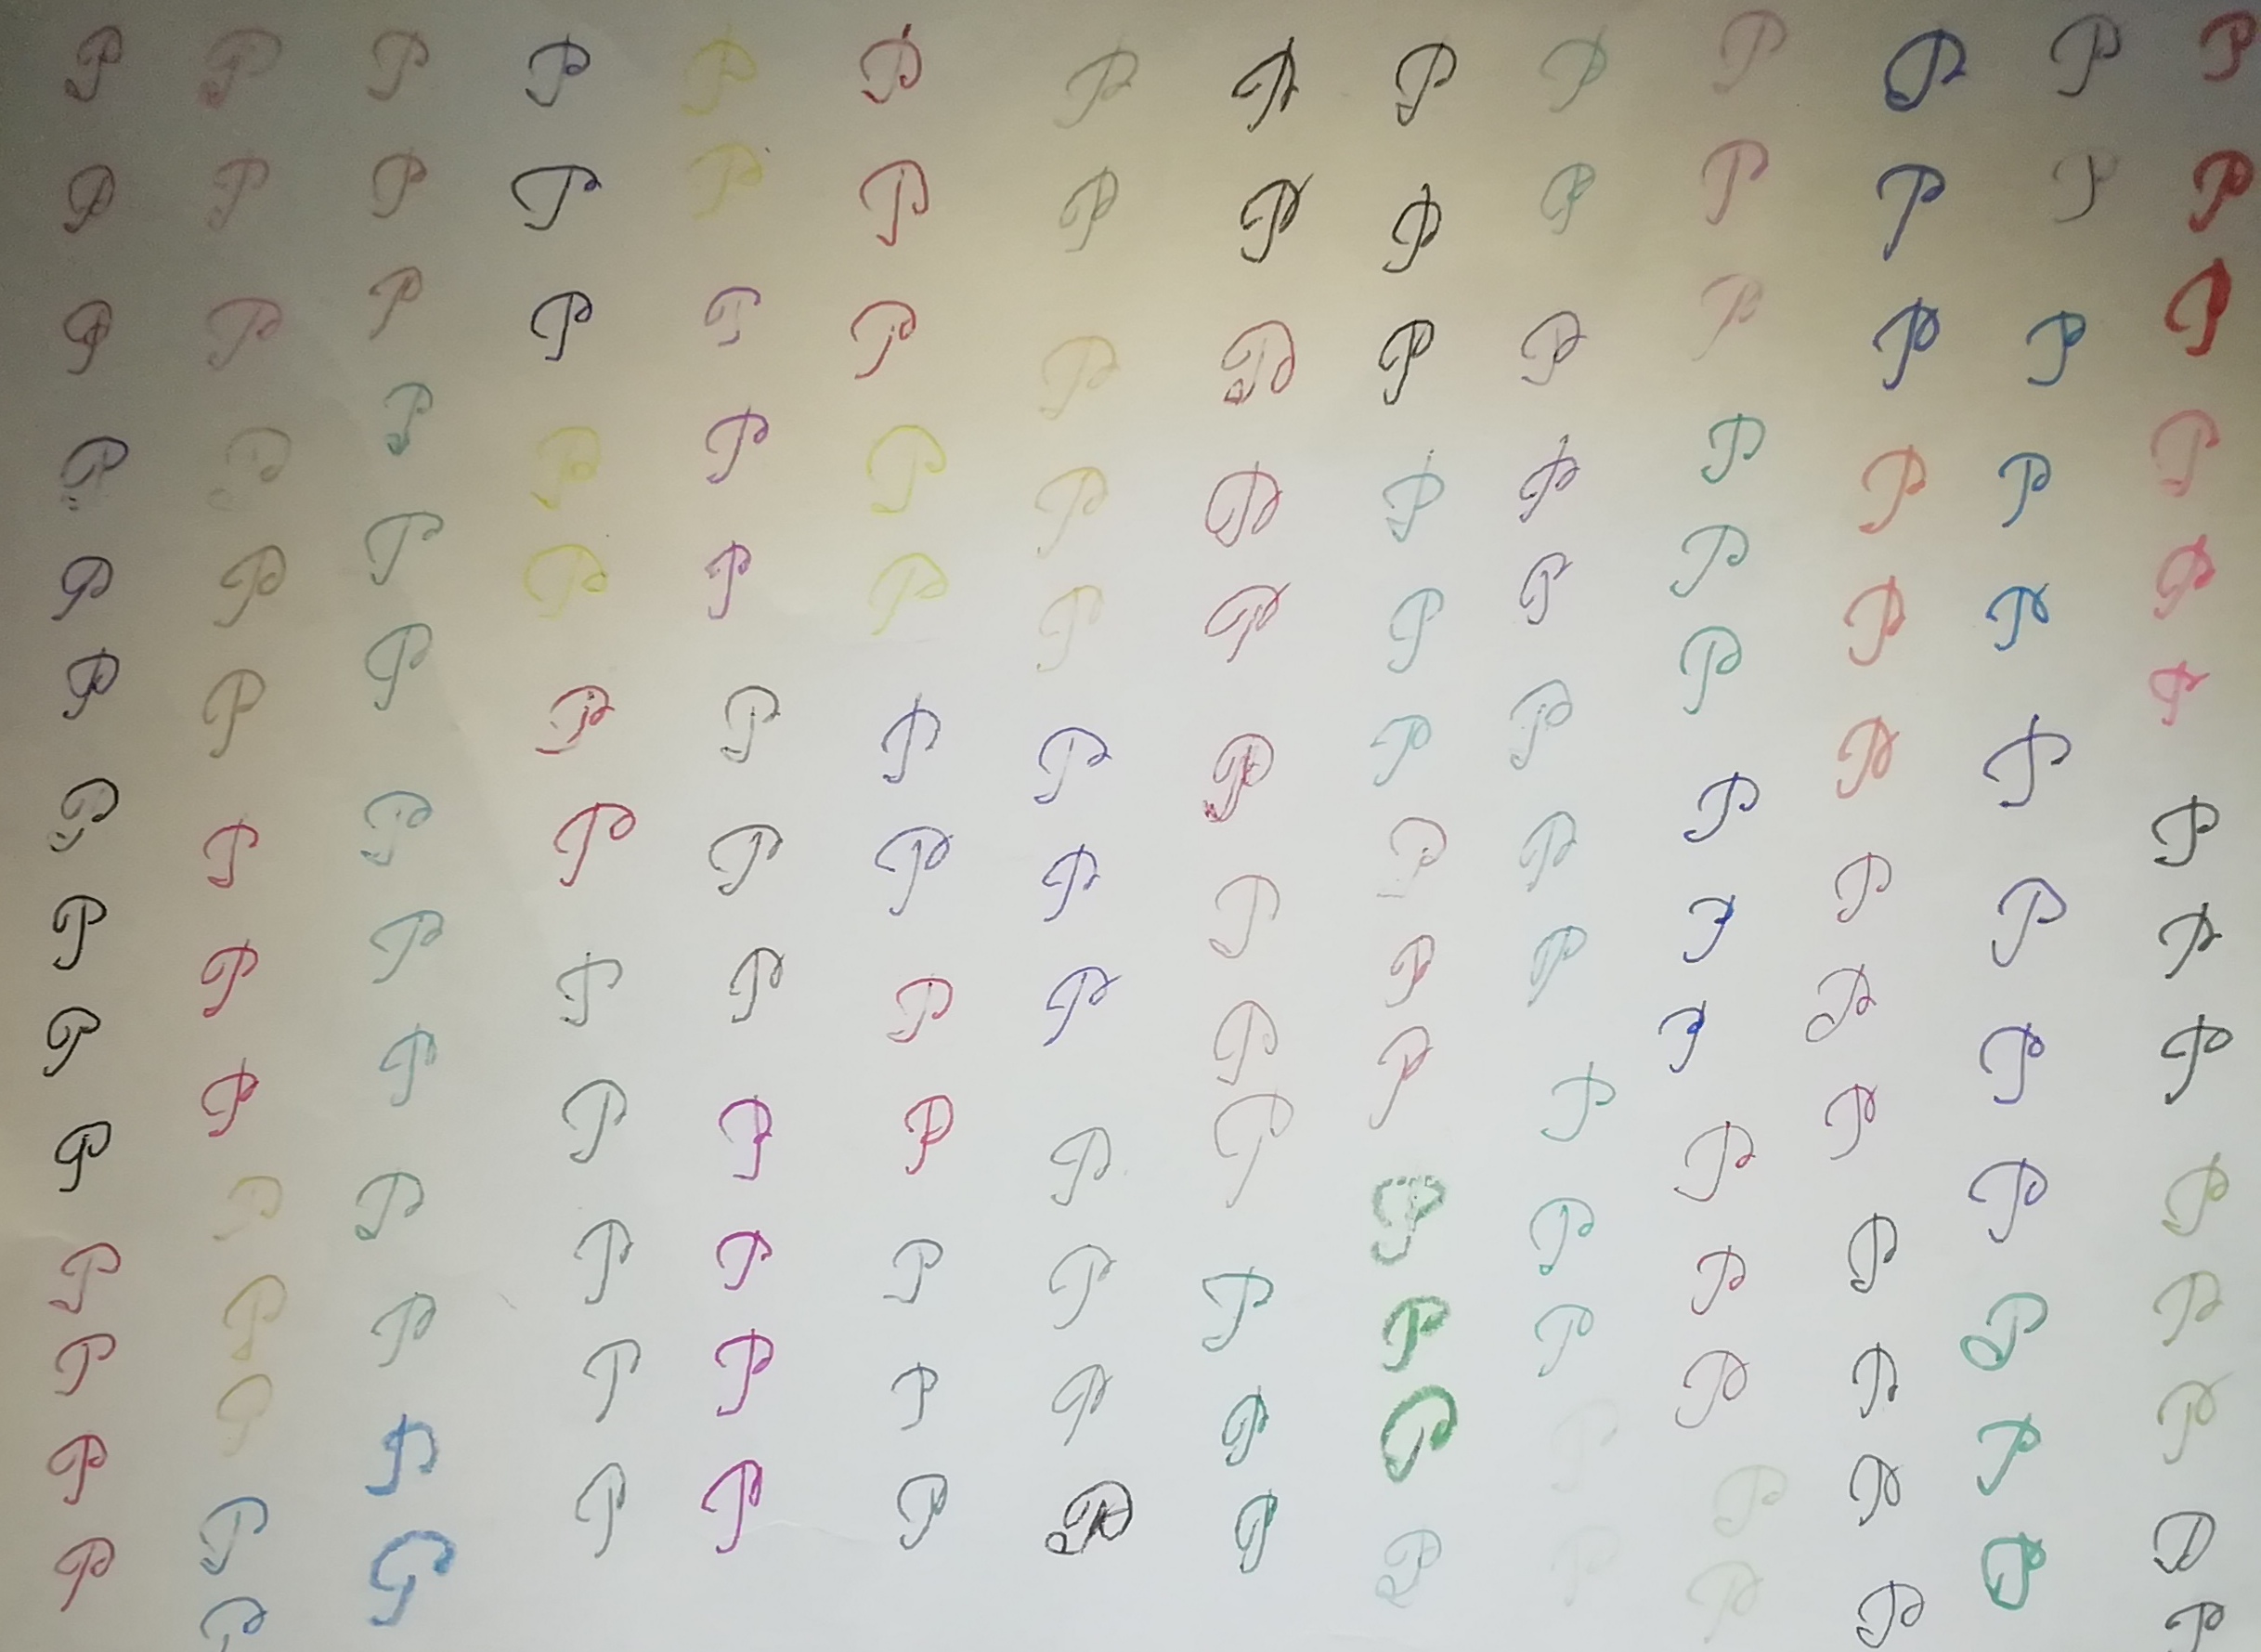 P P P P P P P P P P P P P P
P P P P P P P P P P P P P P
P P P P P P P P P P P P P P
P P P P P P P P P P P P P P
P P P P P P P P P P P P P P
P P P P P P P P P P P P P P
P P P P P P P P P P P P P P
P P P P P P P P P P P P P P
P P P P P P P P P P P P P P
P P P P P P P P P P P P P P
P P P P P P P P P P P P P P
P P P P P P P P P P P P P P
P P P P P P P P P P P P P P
P P P P